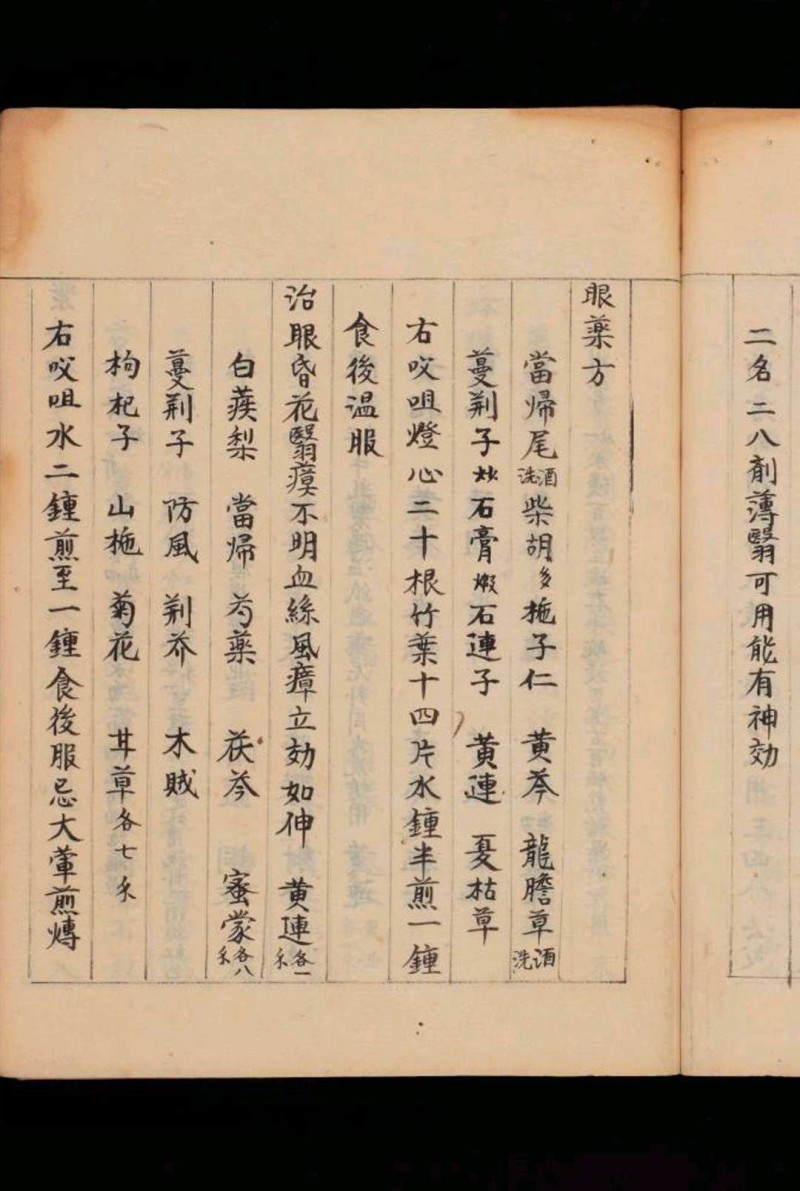 二名二八剤薄翳可用能有神効
眼薬方
當帰尾酒洗柴胡多梔子仁 黄芩 龍膽草酒洗
蔓荆子炒石膏煆石連子 黄連 夏枯草
右㕮咀燈心二十根竹葉十四片水鍾半煎一鍾
食後温服
治眼昏花翳瘼不明血絲風瘴立効如伸 黄連各一
白蒺梨 當帰 芍薬 茯苓 蜜蒙各八
蔓荆子 防風 荆芥 木賊
枸杞子 山梔 菊花 甘草各七
右㕮咀水二鍾煎至一鍾食後服忌大葷煎煿